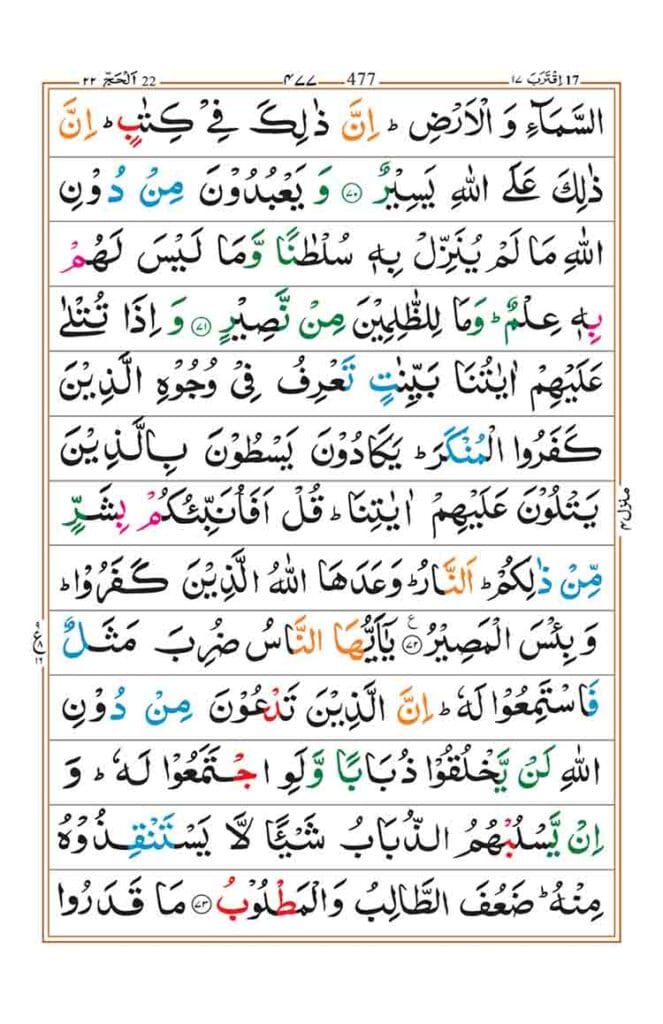 اَلْحَجّ 22 ٢٢ 477 ٤٧٧ اِقْتَرَبَ 17 ١٧
السَّمَآءِ وَ الْاَرْضِ ؕ اِنَّ ذٰلِكَ فِیْ كِتٰبٍ ؕ اِنَّ
ذٰلِكَ عَلَی اللّٰهِ یَسِیْرٌ ﴿۷۰﴾ وَ یَعْبُدُوْنَ مِنْ دُوْنِ
اللّٰهِ مَا لَمْ یُنَزِّلْ بِهٖ سُلْطٰنًا وَّ مَا لَیْسَ لَهُمْ
بِهٖ عِلْمٌ ؕ وَمَا لِلظّٰلِمِیْنَ مِنْ نَّصِیْرٍ ﴿۷۱﴾ وَ اِذَا تُتْلٰی
عَلَیْهِمْ اٰیٰتُنَا بَیِّنٰتٍ تَعْرِفُ فِیْ وُجُوْهِ الَّذِیْنَ
كَفَرُوا الْمُنْكَرَ ؕ یَكَادُوْنَ یَسْطُوْنَ بِالَّذِیْنَ
یَتْلُوْنَ عَلَیْهِمْ اٰیٰتِنَا ؕ قُلْ اَفَاُنَبِّئُكُمْ بِشَرٍّ
منزل ۴
مِّنْ ذٰلِكُمْ ؕ اَلنَّارُ ؕ وَعَدَهَا اللّٰهُ الَّذِیْنَ كَفَرُوْا ؕ
وَ بِئْسَ الْمَصِیْرُ ﴿۷۲﴾ ع یٰۤاَیُّهَا النَّاسُ ضُرِبَ مَثَلٌ
فَاسْتَمِعُوْا لَهٗ ؕ اِنَّ الَّذِیْنَ تَدْعُوْنَ مِنْ دُوْنِ
اللّٰهِ لَنْ یَّخْلُقُوْا ذُبَابًا وَّ لَوِ اجْتَمَعُوْا لَهٗ ؕ وَ
اِنْ یَّسْلُبْهُمُ الذُّبَابُ شَیْـًٔا لَّا یَسْتَنْقِذُوْهُ
مِنْهُ ؕ ضَعُفَ الطَّالِبُ وَالْمَطْلُوْبُ ﴿۷۳﴾ مَا قَدَرُوا